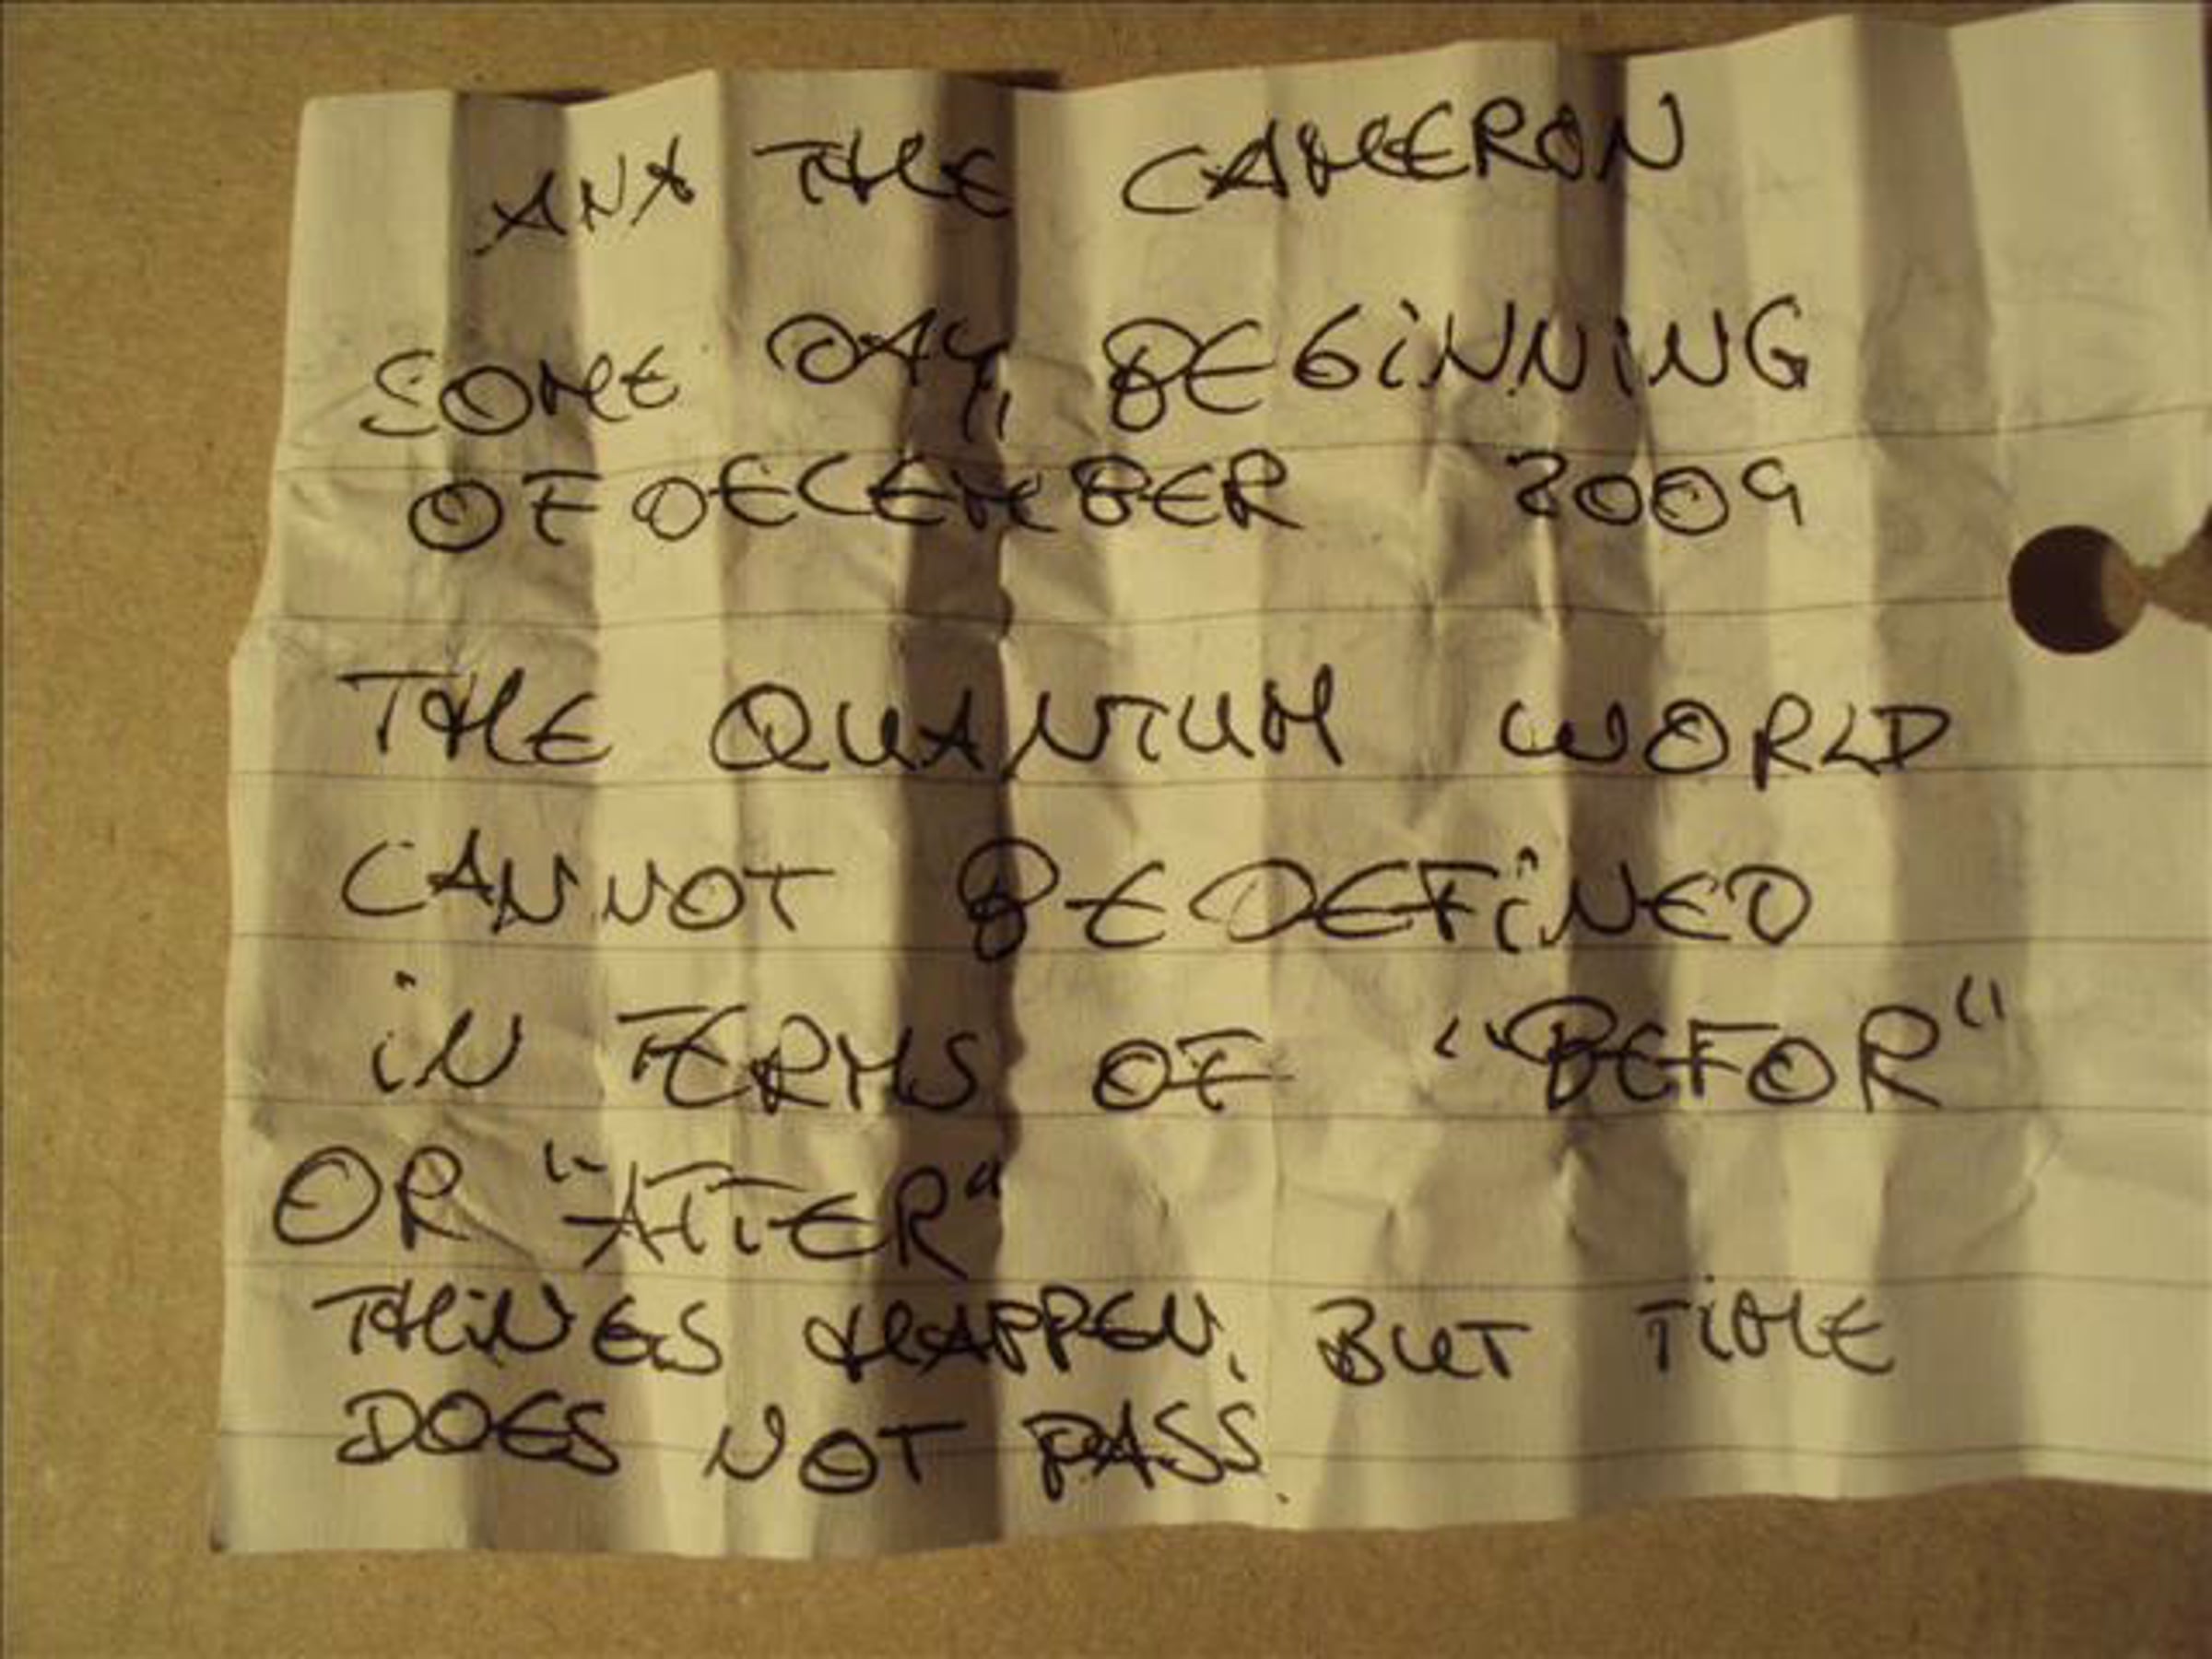 ANX THE CAMERON
SOME DAY, BEGINNING
OF DECEMBER 2009
THE QUANTUM WORLD
CANNOT BE DEFINED
iN TERMS OF "BEFOR"
OR "AFTER"
THiNGS HAPPEN, BUT TiME
DOES NOT PASS.